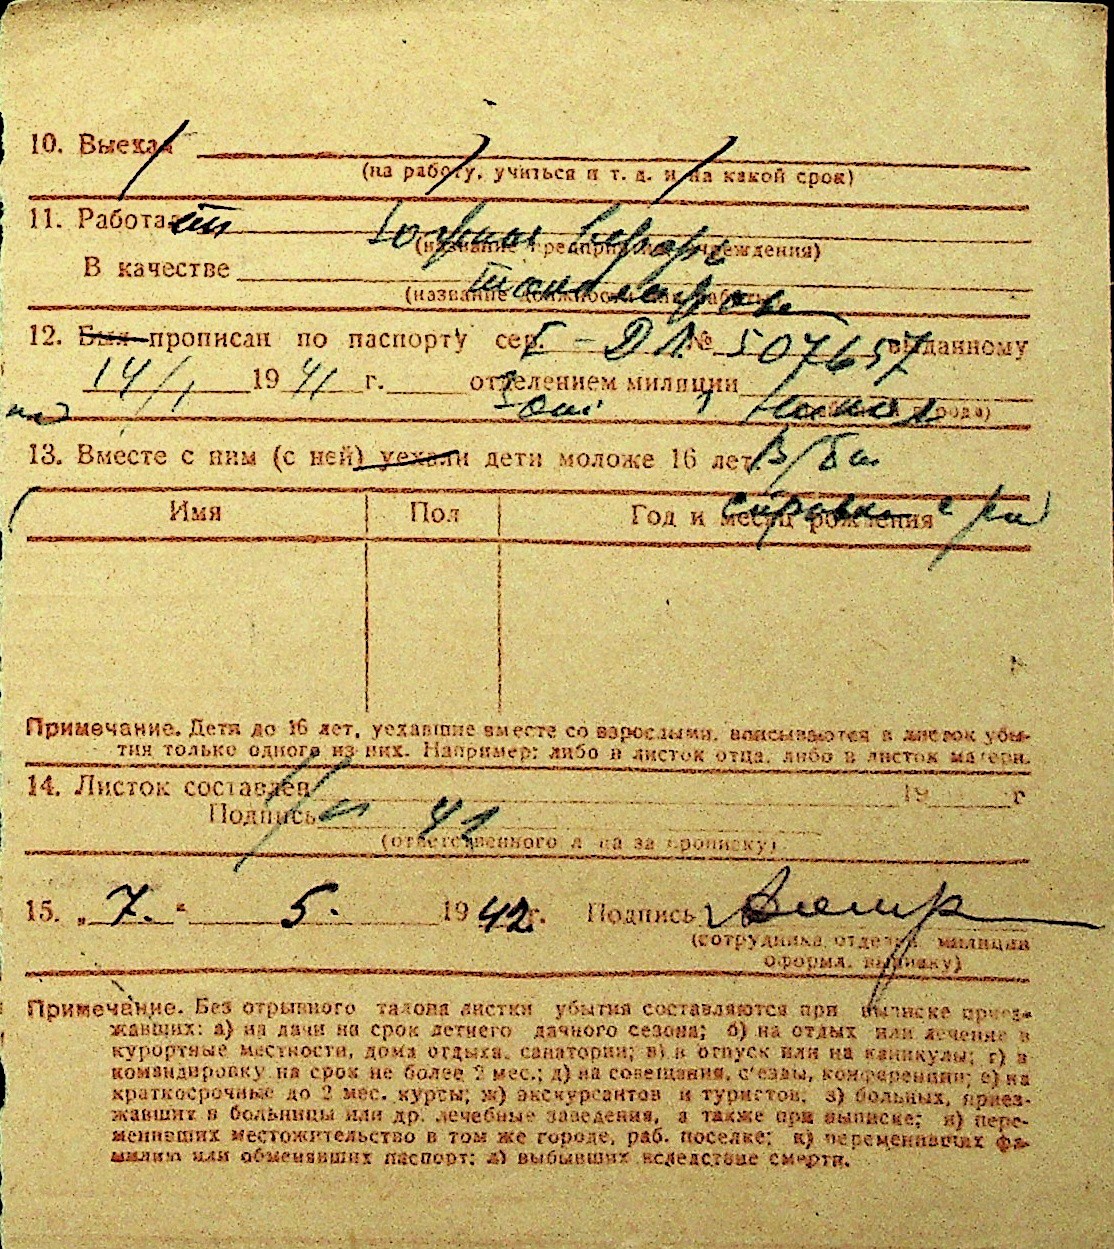 10. Выехал
(на работу, учиться и т. д. и на какой срок)
11. Работает
(название предприятия, учреждения)
В качестве
(название должности или работы)
12. Был прописан по паспорту сер. I - ДЛ № 507657 выданному
14/I 1941 г. отделением милиции
13. Вместе с ним (с ней) уехали дети моложе 16 лет В/би
Имя Пол Год и месяц рождения
справка с
Примечание. Дети до 16 лет, уехавшие вместе со взрослыми, вписываются в листок убы-
тия только одного из них. Например: либо в листок отца, либо в листок матери.
14. Листок составлен 19 г
Подпись 42
(ответственного л на за прописку)
15. „7." 5. 1942 г. Подпись
(сотрудника отделен. милиции
оформл. выписку)
Примечание. Без отрывного талона листки убытия составляются при выписке приез-
жавших: а) на дачи на срок летнего дачного сезона; б) на отдых или лечение в
курортные местности, дома отдыха, санатории; в) в отпуск или на каникулы; г) в
командировку на срок не более 2 мес.; д) на совещания, с'езды, конференции; е) на
краткосрочные до 2 мес. курсы; ж) экскурсантов и туристов; з) больных, приез-
жавших в больницы или др. лечебные заведения, а также при выписке; и) пере-
менивших местожительство в том же городе, раб. поселке; к) переменивших фа-
милию или обменявших паспорт; л) выбывших вследствие смерти.